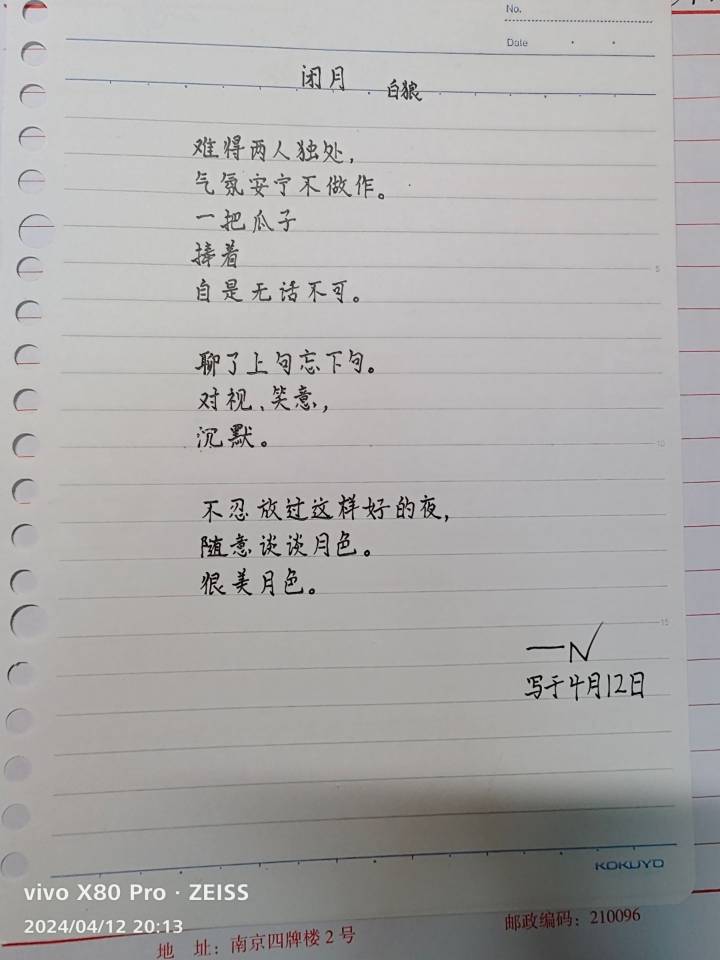 No.
Date
闭月 白狼
难得两人独处，
气氛安宁不做作。
一把瓜子
捧着
自是无话不可。
聊了上句忘下句。
对视、笑意，
沉默。
不忍放过这样好的夜，
随意谈谈月色。
狠美月色。
写于4月12日
5
10
15
KOKUYO
vivo X80 Pro · ZEISS
2024/04/12 20:13
地 址：南京四牌楼 2 号
邮政编码：210096